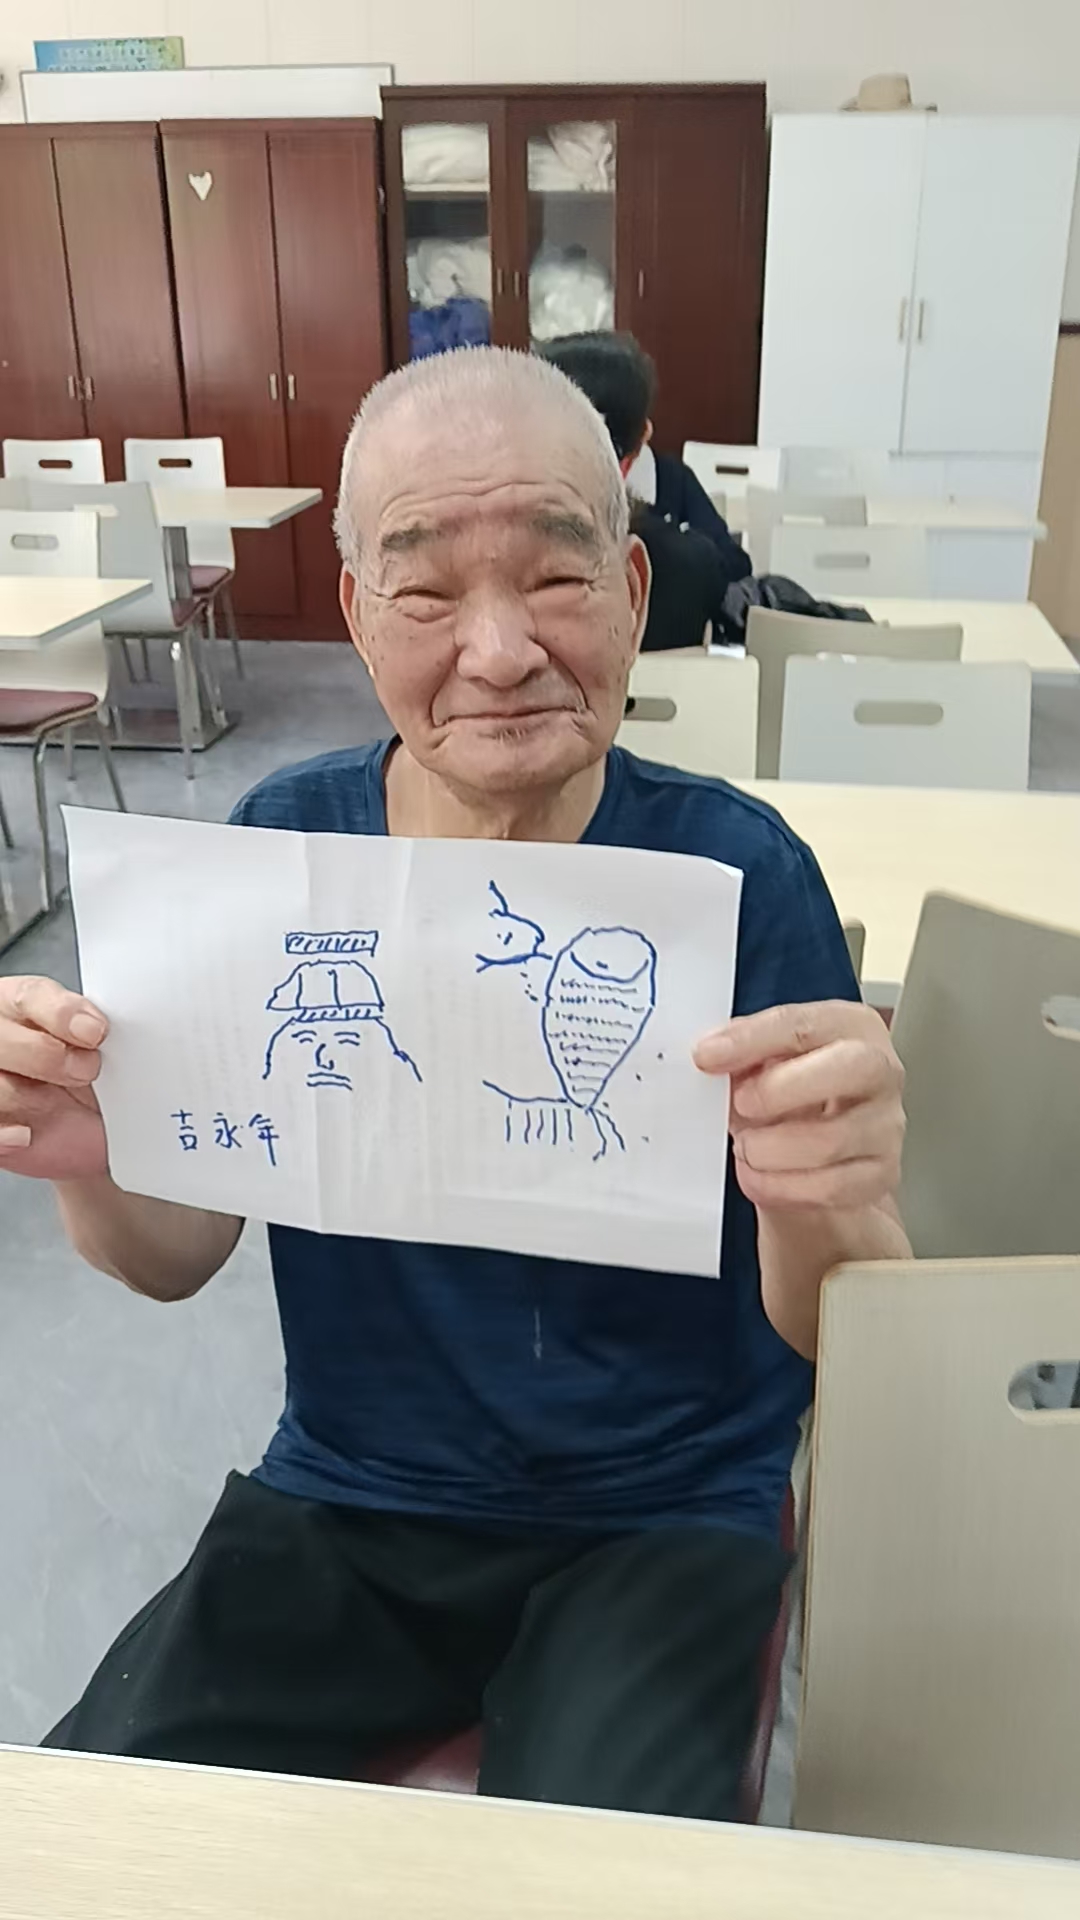 吉永年